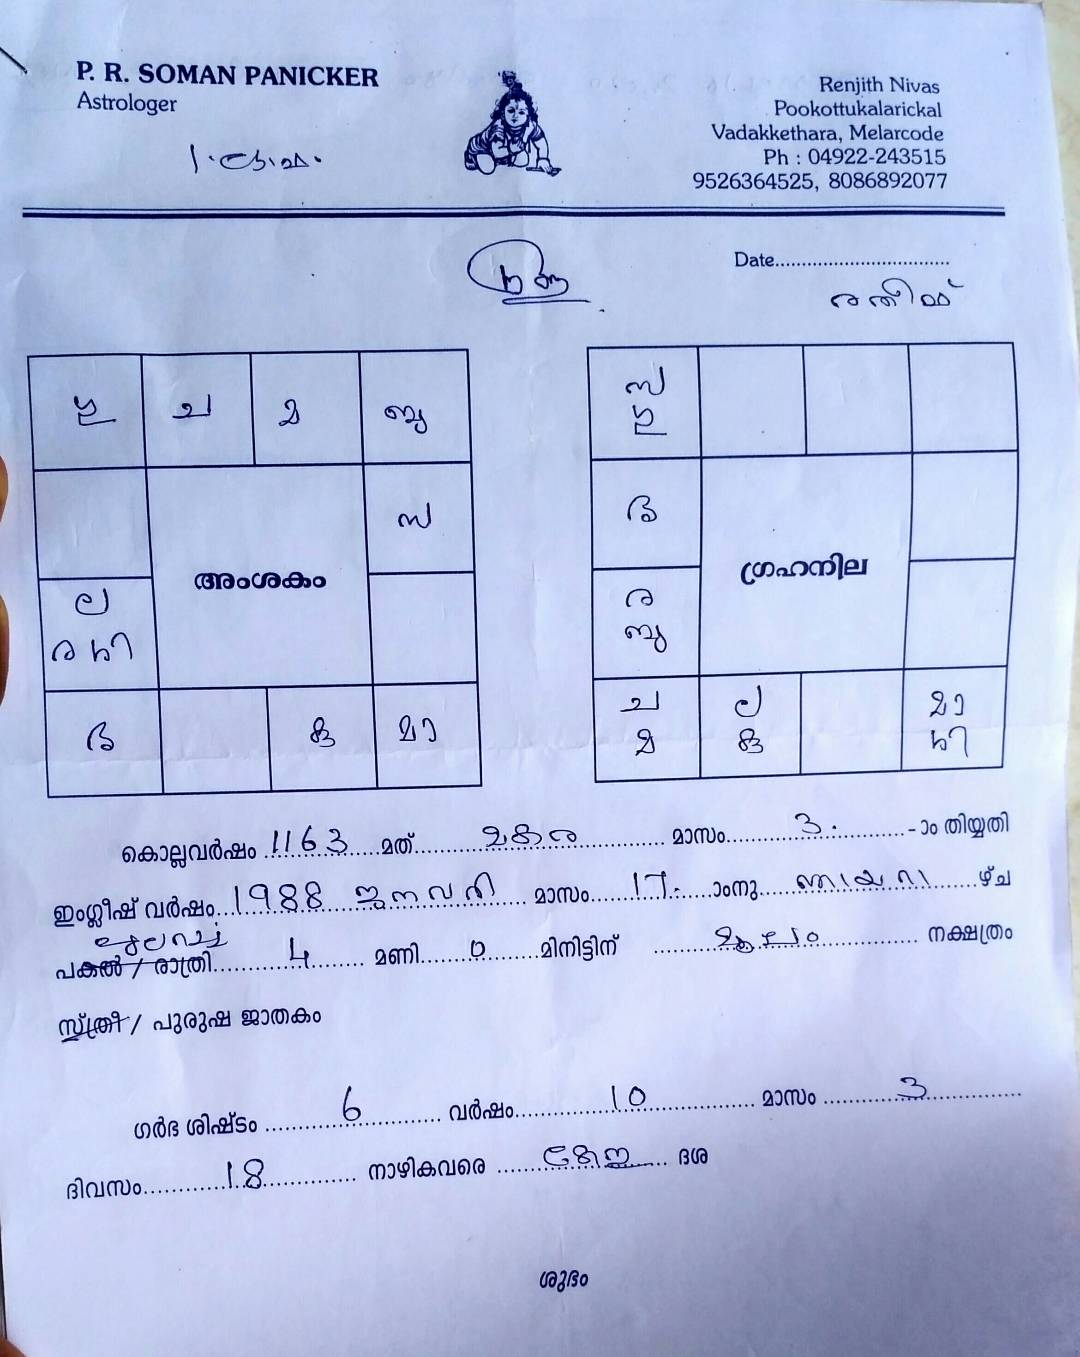 P. R. SOMAN PANICKER
Astrologer
Renjith Nivas
Pookottukalarickal
Vadakkethara, Melarcode
Ph : 04922-243515
9526364525, 8086892077
Date
രതീഷ്
ഗു ച മ ബു
സ
അംശകം
ല
ര ശി
ഭ കു മാ
സ
ഗു
ഭ
ഗ്രഹനില
ര
ബു
ച ല മാ
മ കു ശി
കൊല്ലവർഷം 1163 മത് മകര മാസം 3. -ാം തിയ്യതി
ഇംഗ്ലീഷ് വർഷം 1988 ജനവരി മാസം 17. ാംനു ഞായറാ ഴ്ച
പുലർച്ചെ
പകൽ / രാത്രി 4 മണി 0 മിനിട്ടിന് മൂലം നക്ഷത്രം
സ്ത്രീ / പുരുഷ ജാതകം
ഗർഭ ശിഷ്ടം 6 വർഷം 10 മാസം 3
ദിവസം 18 നാഴികവരെ കേതു ദശ
ശുഭം